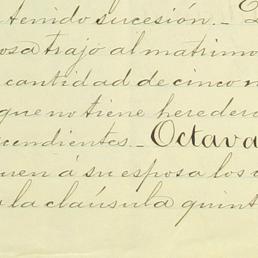 tenido sucesión.-
osa trajo al matrimo
cantidad de cinco
que no tiene heredero
cendientes.- Octava
uen á su esposa los
la cláusula quint